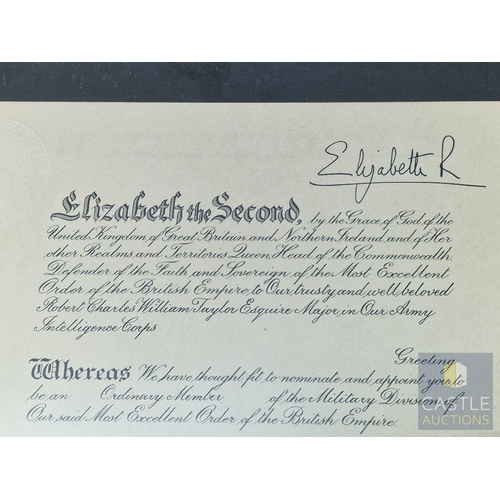 Elizabeth R
Elizabeth the Second, by the Grace of God, of the
United Kingdom of Great Britain and Northern Ireland and of Her
other Realms and Territories Queen, Head of the Commonwealth,
Defender of the Faith and Sovereign of the Most Excellent
Order of the British Empire to Our trusty and well beloved
Robert Charles William Taylor Esquire Major in Our Army
Intelligence Corps
Greeting
Whereas We have thought fit to nominate and appoint you to
be an Ordinary Member of the Military Division of
Our said Most Excellent Order of the British Empire.
CASTLE
AUCTIONS